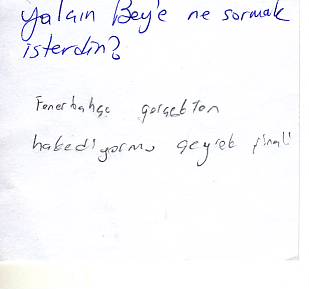 Yalçın Bey'e ne sormak
isterdin?
Fenerbahçe gerçekten
hakediyormu çeyrek final